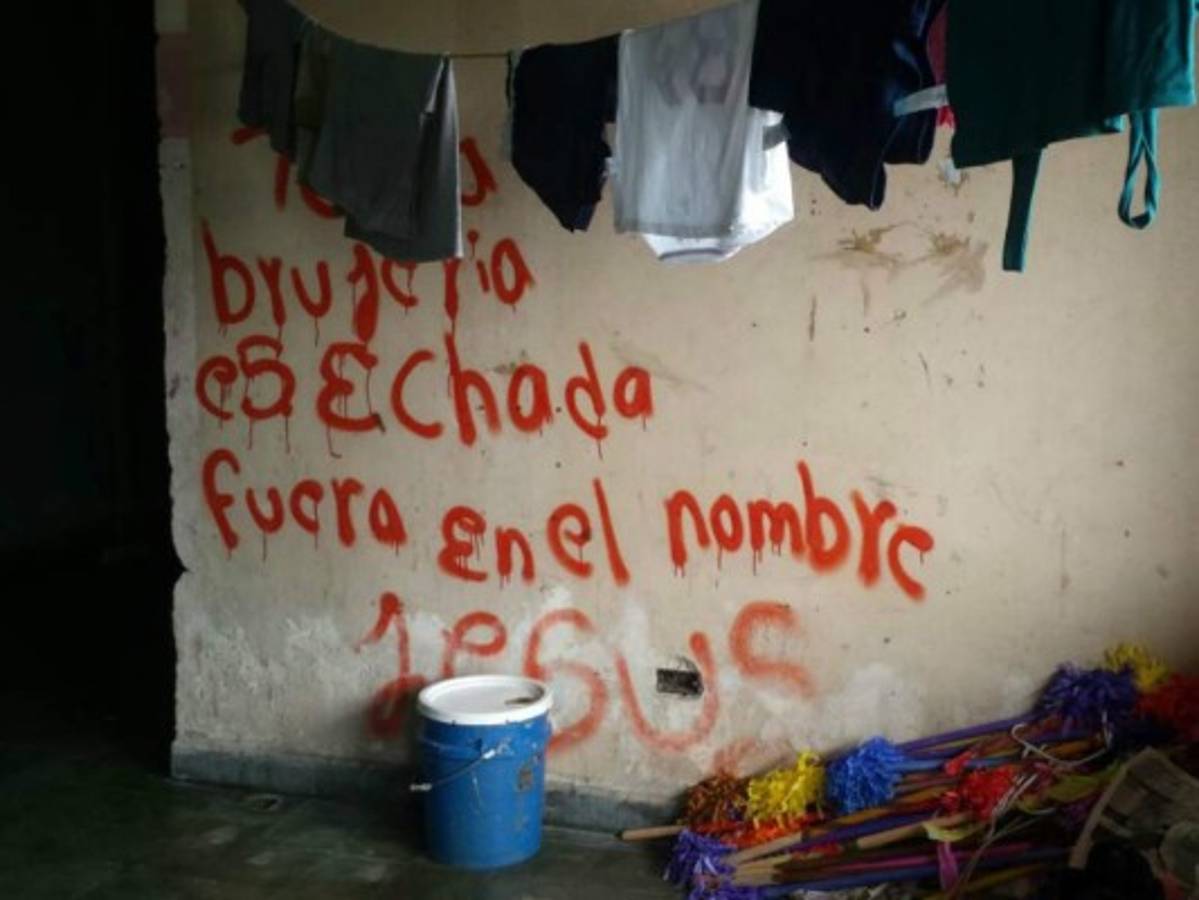 brujeria
es Echada
fuera en el nombre
Jesus